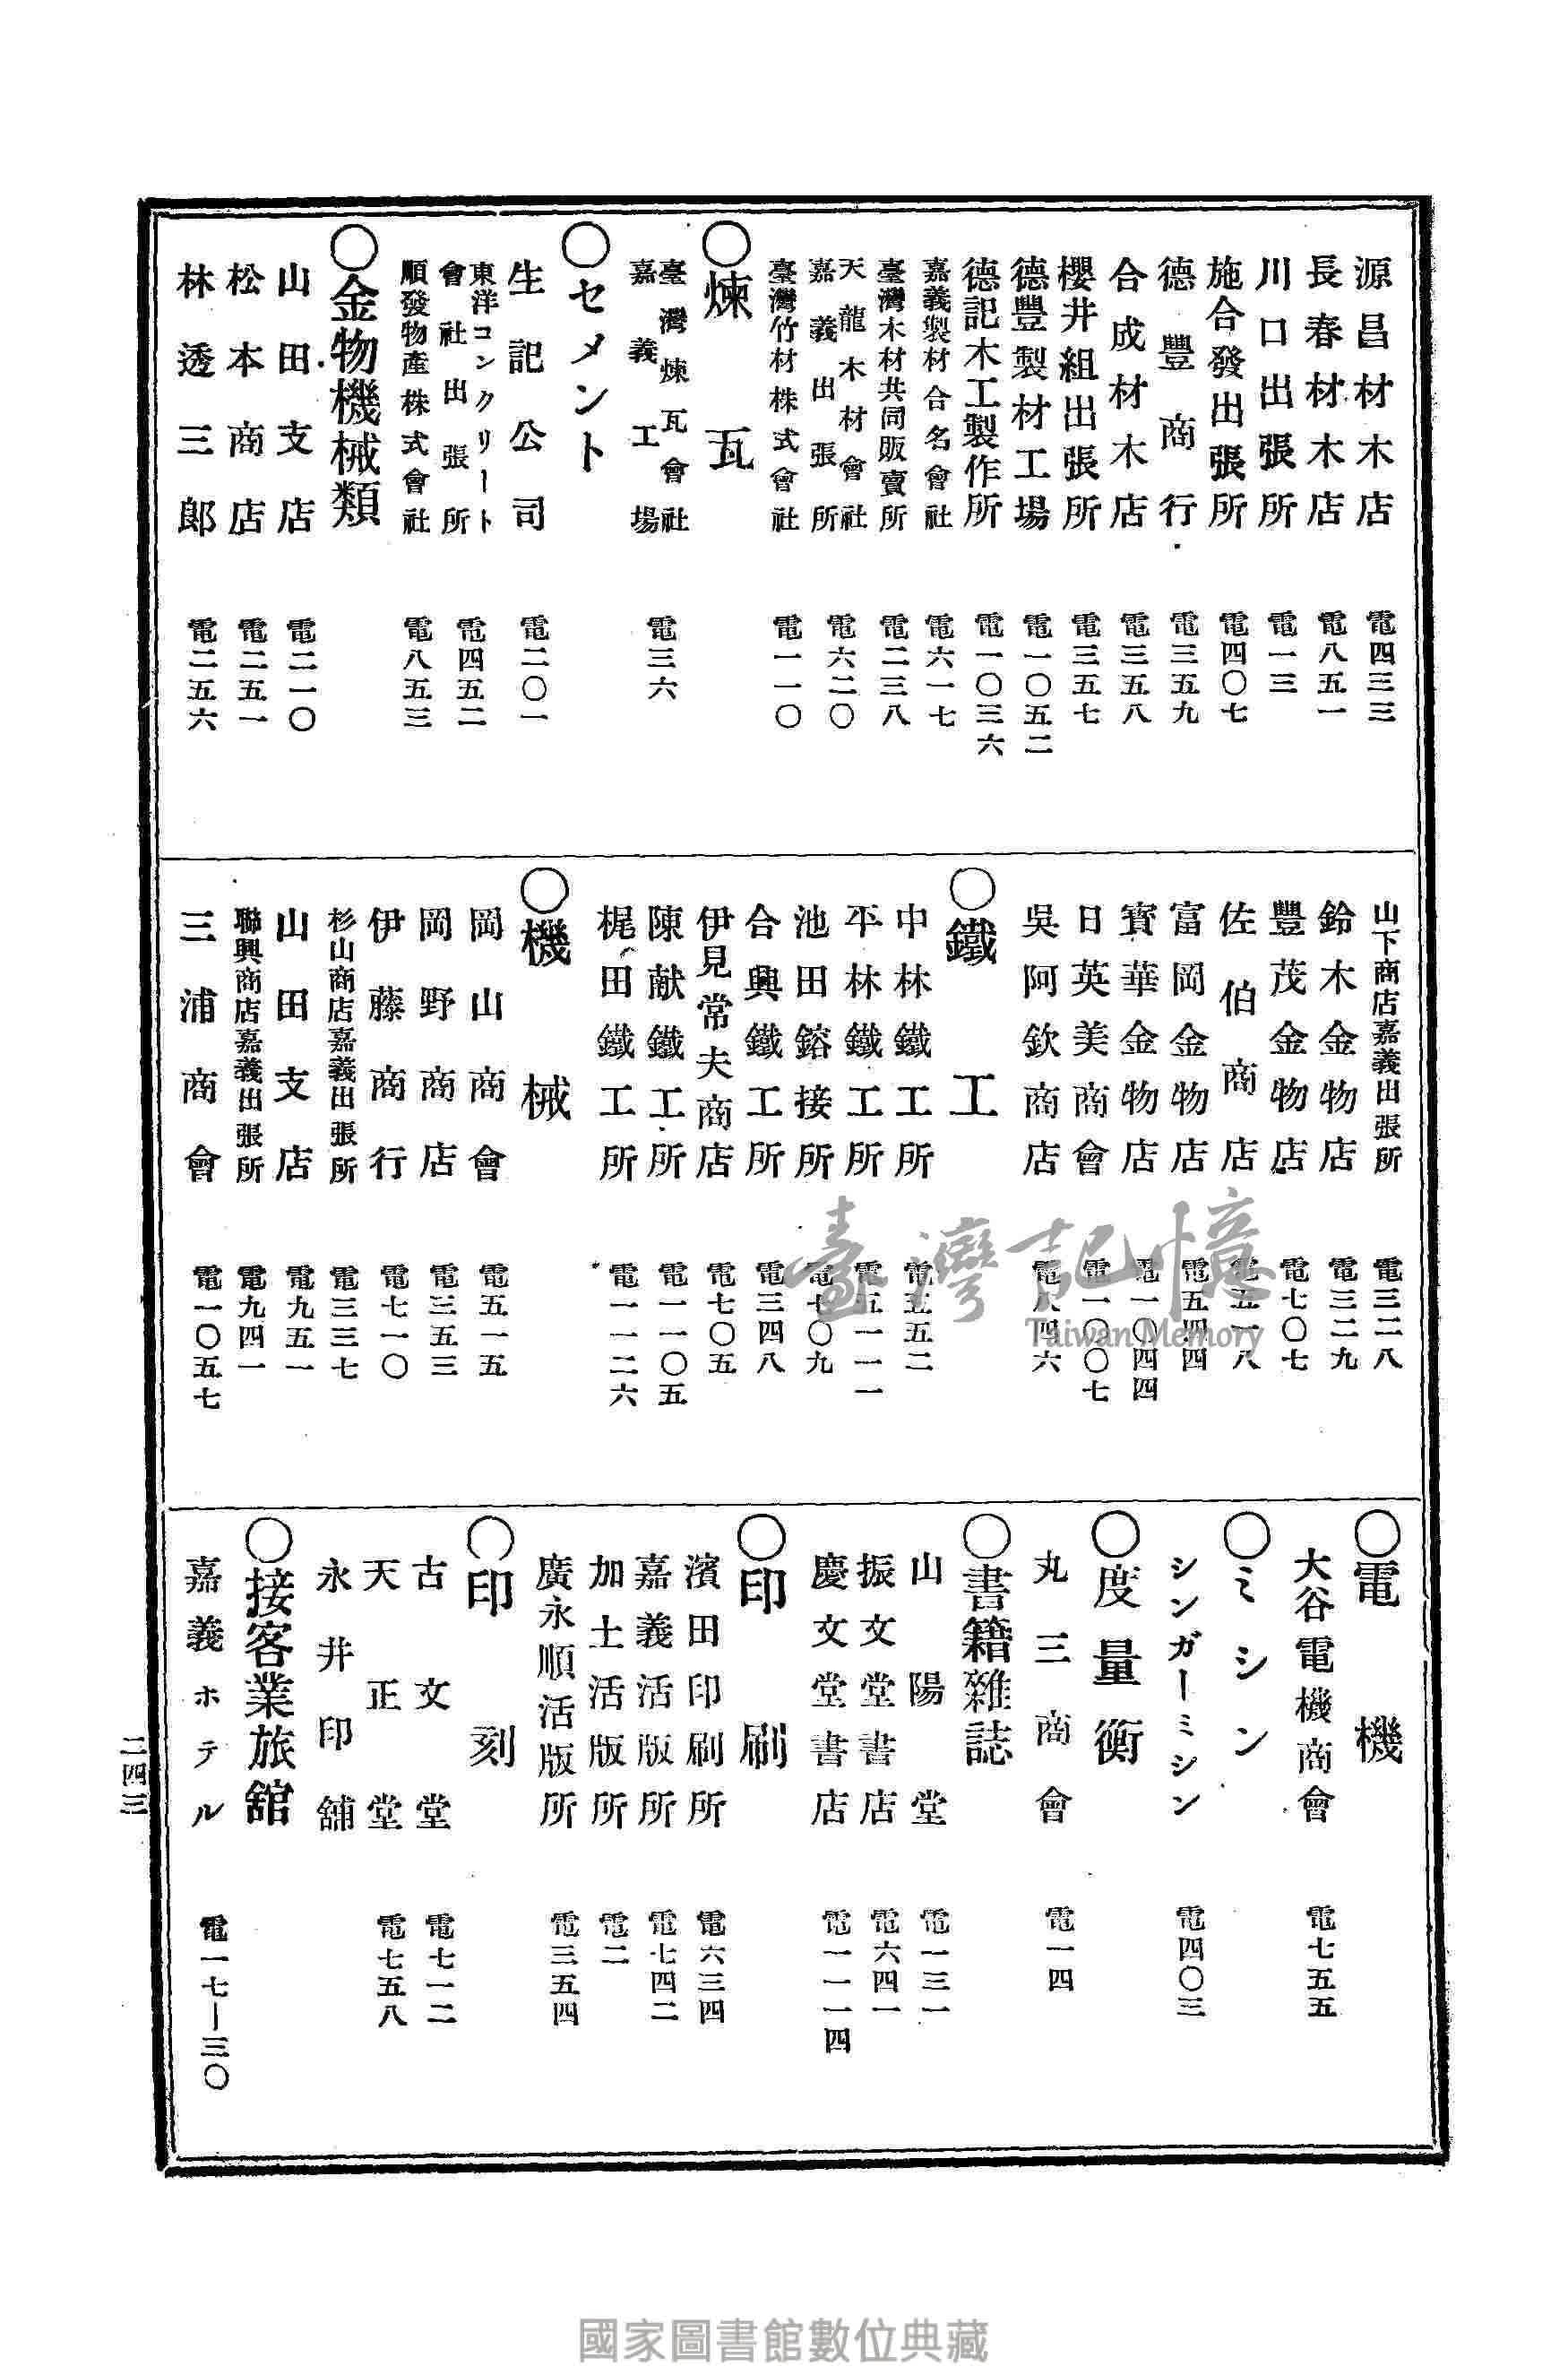 源昌材木店 電四三三
長春材木店 電八五一
川口出張所 電一三
施合發出張所 電四〇七
德豐商行 電三五九
合成材木店 電三五八
櫻井組出張所 電三五七
德豐製材工場 電一〇五二
德記木工製作所 電一〇三六
嘉義製材合名會社 電六一七
臺灣木材共同販賣所 電二三八
天龍木材會社
嘉義出張所 電六二〇
臺灣竹材株式會社 電一一〇
〇煉瓦
臺灣煉瓦會社
嘉義工場 電三六
〇セメント
生記公司 電二〇一
東洋コンクリート
會社出張所 電四五二
順發物產株式會社 電八五三
〇金物機械類
山田支店 電二一〇
松本商店 電二五一
林透三郎 電二五六
山下商店嘉義出張所 電三二八
鈴木金物店 電三二九
豐茂金物店 電七〇七
佐伯商店 電五一八
富岡金物店 電五四四
寶華金物店 電一〇四四
日英美商會 電一〇〇七
吳阿欽商店 電八四六
〇鐵工
中林鐵工所 電五五二
平林鐵工所 電五一一一
池田鎔接所 電七〇九
合興鐵工所 電三四八
伊見常夫商店 電七〇五
陳献鐵工所 電一一〇五
梶田鐵工所 電一一二六
〇機械
岡山商會 電五一五
岡野商店 電三五三
伊藤商行 電七一〇
杉山商店嘉義出張所 電三三七
山田支店 電九五一
聯興商店嘉義出張所 電九四一
三浦商會 電一〇五七
〇電機
大谷電機商會 電七五五
〇ミシン
シンガーミシン 電四〇三
〇度量衡
丸三商會 電一四
〇書籍雜誌
山陽堂 電一三一
振文堂書店 電六四一
慶文堂書店 電一一一四
〇印刷
濱田印刷所 電六三四
嘉義活版所 電七四二
加士活版所 電二
廣永順活版所 電三五四
〇印刻
古文堂 電七一二
天正堂 電七五八
永井印舖
〇接客業旅舘
嘉義ホテル 電一七―三〇
二四三
臺灣記憶
Taiwan Memory
國家圖書館數位典藏